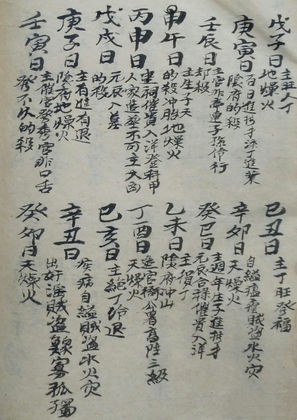 戊子日 主壯人丁 地燥火
庚寅日 百日進財 子孫進業 陰府的殺
壬辰日 主非常 連子孫修行 却殺
甲午日 主生子天 的殺 冲胎 地燥火
丙申日 主初催貴 入洋登科甲 人家造葬不可主大凶
戊戌日 元辰入墓 的殺
庚子日 主有進有退 陰府 地燥火
壬寅日 主催官發秀 官非口舌 發不久 的殺
己丑日 主丁旺登福
辛卯日 自縊瘟疫賊盜水火灾 天燥火
癸巳日 主週年生子進財 元辰合祿催貴入洋
乙未日 主賀 陰府 冲山
丁酉日 天燥火 進官橫公曹高陞三級
己亥日 主絕丁冷退
辛丑日 疾病自縊賊盜水火灾 出奸淫賊盜鰥寡孤獨
癸卯日 天燥火